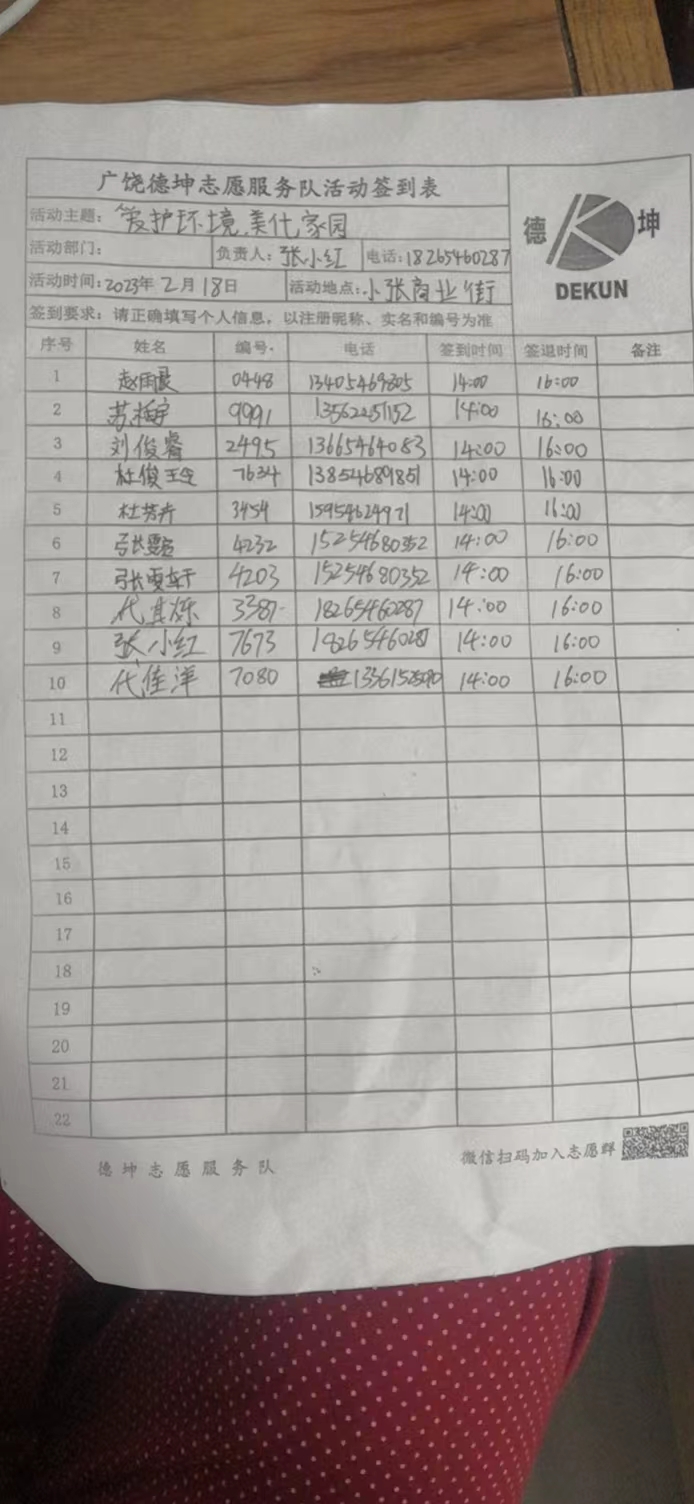 广饶德坤志愿服务队活动签到表
德 坤
DEKUN
活动主题：爱护环境,美化家园
活动部门： 负责人：张小红 电话：18265460287
活动时间：2023年 2月 18日 活动地点：小张商业街
签到要求：请正确填写个人信息，以注册昵称、实名和编号为准
序号 姓名 编号 电话 签到时间 签退时间 备注
1 赵雨晨 0448 13405469805 14:00 16:00
2 9991 14:00 16:00
3 刘俊睿 2495 13665464083 14:00 16:00
4 7634 13854689851 14:00 16:00
5 杜芳卉 3454 15954624971 14:00 16:00
6 4232 15254680352 14:00 16:00
7 张雯轩 4203 15254680352 14:00 16:00
8 代其烁 3387 18265460287 14:00 16:00
9 张小红 7673 18265460287 14:00 16:00
10 代佳洋 7080 14:00 16:00
11
12
13
14
15
16
17
18
19
20
21
22
德坤志愿服务队 微信扫码加入志愿群